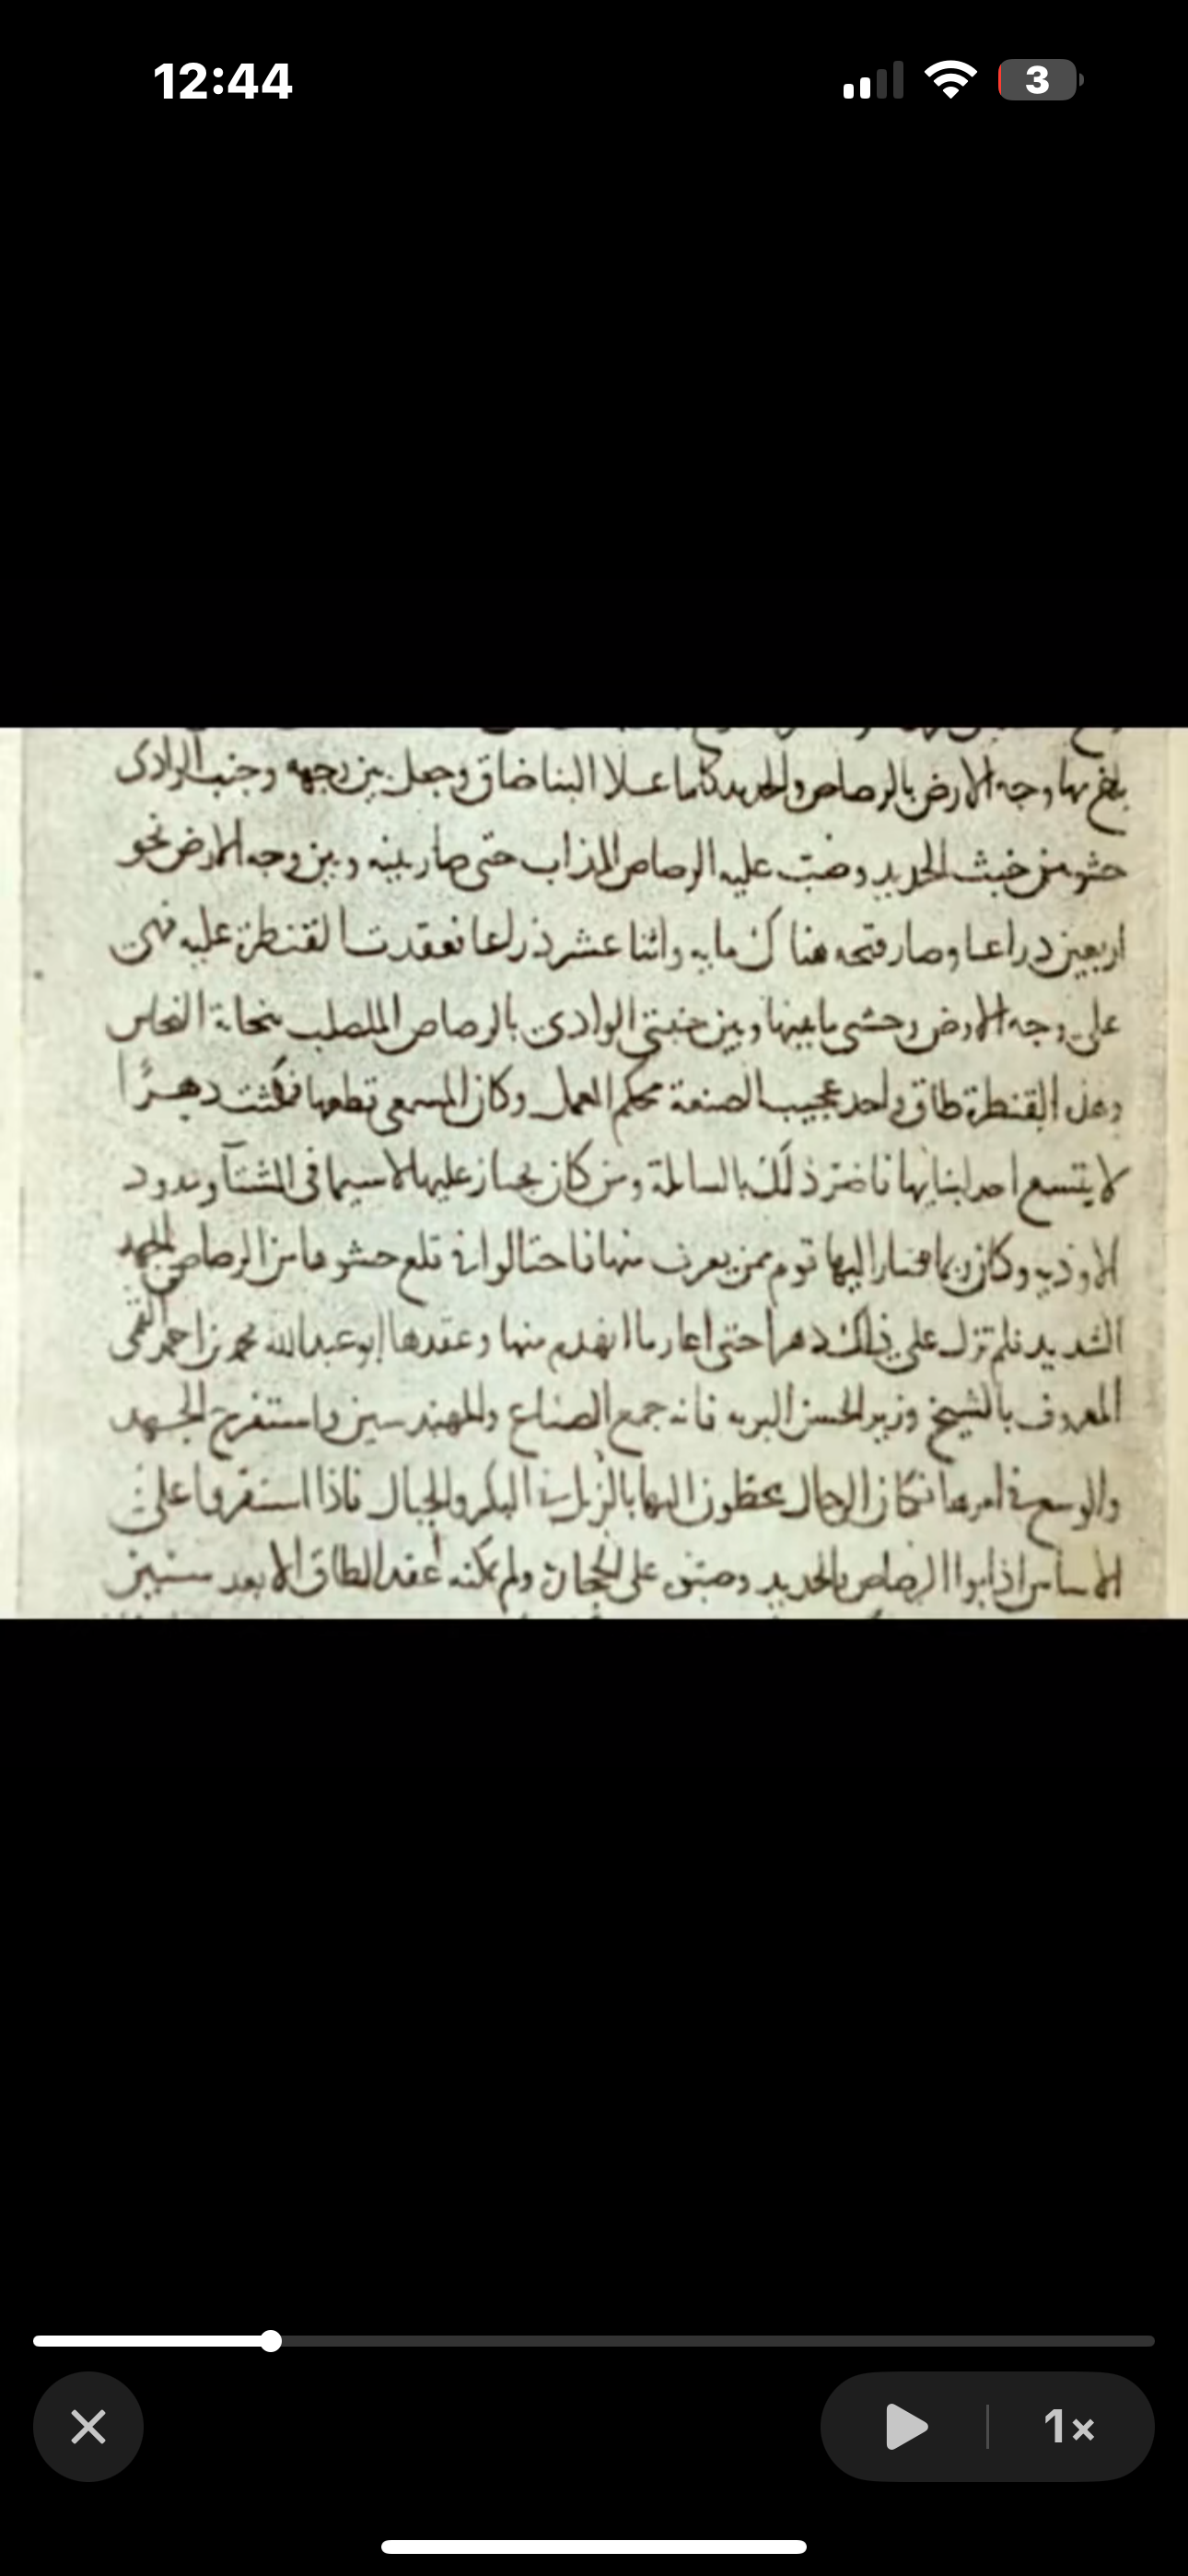 12:44
3
بلغ بها وجه الارض بالرصاص والحديد كلما علا البنا ضاق وجعل بين وجهه وجنب الوادى
حشو من خبث الحديد وصب عليه الرصاص المذاب حتى صار بينه وبين وجه الارض نحو
اربعين ذراعا وصار فتحه هناك مايه واثنا عشر ذراعا فعقدت القنطرة عليه فهى
على وجه الارض وحشى ما بينها وبين جنبتى الوادى بالرصاص المصلب بنحاتة النحاس
وهذه القنطرة طاق واحد عجيب الصنعة محكم العمل وكان المسمعى قطعها فمكثت دهرًا
لا يتسع احد لبنايها فاضر ذلك بالسابلة ومن كان يجتاز عليها لا سيما فى الشتآ ومدود
الاوديه وكان ربما صار اليها قوم ممن يعرف منها فاحتالوا فى قلع حشوها من الرصاص بالجهد
الشديد فلم تزل على ذلك دهرا حتى اعاد ما انهدم منها وعقدها ابو عبد الله محمد بن احمد القمى
المعروف بالشيخ وزير الحسن البويه فانه جمع الصناع والمهندسين واستفرغ الجهد
والوسع فى امرها فكان الرجال يحطون اليها بالزبل فى البكر والحبال فاذا استقروا على
الاساس اذابوا الرصاص والحديد وصبوه على الحجارة ولم يمكنه عقد الطاق الا بعد سنين
1×